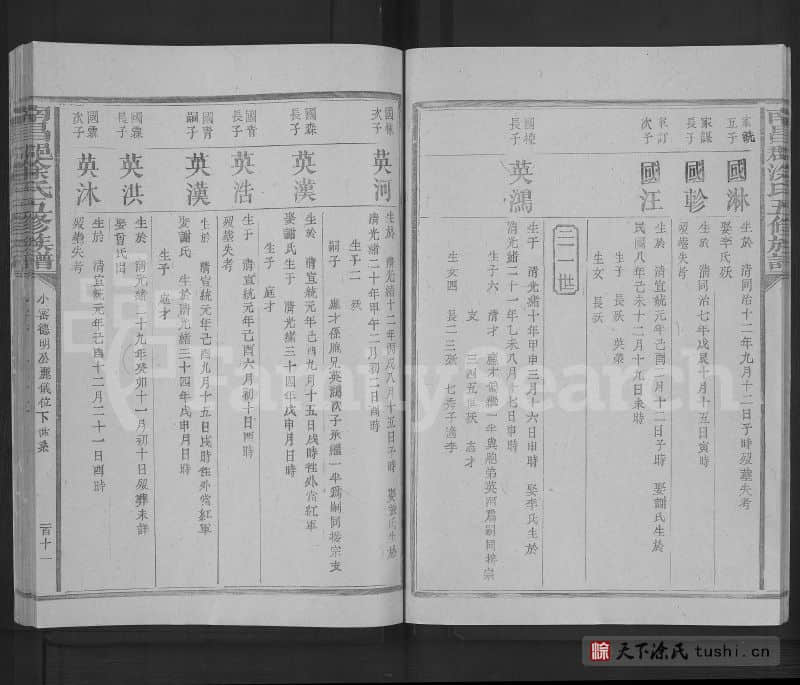 家詵
五子
國淋
生於 清同治十二年九月十二日子時 歿塟失考
娶李氏歿
家謀
長子
國軫
生於 清同治七年戊辰十月十五日寅時
歿塟失考
家訂
次子
國汪
生於 清宣統元年己酉二月十二日子時 娶謝氏生於
民國八年己未十二月十九日未時
生子 長歿 英榮
生女 長歿
二一世
長子
英鴻
生於 清光緒十年甲申三月十六日申時 娶李氏生於
清光緒二十一年乙未八月十七日申時
生子六
生女四 長二三歿 七秀子適李
國森
次子
英河
生於 清光緒十二年丙戌八月十五日子時 娶謝氏生於
清光緒二十年甲午二月初二日酉時
生子二 歿
國森
長子
英漢
生於 清宣統元年己酉九月十五日戌時 往外當紅軍
娶謝氏生於 清光緒三十四年戊申月日時
生子 庭才
國青
長子
英浩
生于 清宣統元年己酉六月初十日酉時
歿塟失考
國青
嗣子
英漢
生於 清宣統元年己酉九月十五日戌時 往外當紅軍
娶謝氏 生於清光緒三十四年戊申月日時
生子 庭才
國霖
長子
英洪
生於 清光緒二十九年癸卯十一月初十日 歿葬未詳
娶曾氏
國霖
次子
英沐
生於 清宣統元年己酉十二月二十一日酉時
歿塟失考
南昌郡涂氏五修族譜
小密德明公麗儀位下世系
一百十一
涂 天下涂氏 tushi.cn
FamilySearch